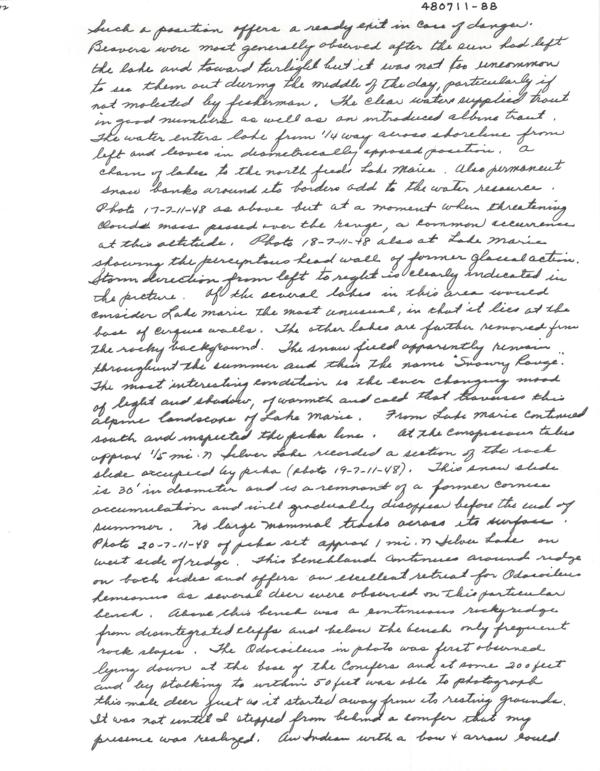 480711-88
Such a position offers a ready exit in case of danger.
Beavers were most generally observed after the sun had left
the lake and toward twilight but it was not too uncommon
to see them out during the middle of the day, particularly if
not molested by fisherman. The clear water supplied trout
in good numbers as well as an introduced albino trout.
The water enters lake from 1/4 way across shoreline from
left and leaves in diametrically opposed position. A
chain of lakes to the north feeds Lake Marie. Also permanent
snow banks around its borders add to the water resource.
Photo 17-7-11-48 as above but at a moment when threatening
clouds mass passed over the range, a common occurrence
at this altitude. Photo 18-7-11-48 also at Lake Marie
showing the preciptous head wall of former glacial action.
Storm direction from left to right is clearly indicated in
the picture. Of the several lakes in this area would
consider Lake Marie the most unusual, in that it lies at the
base of cirque walls. The other lakes are further removed from
the rocky background. The snow field apparently remain
throughout the summer and thus the name "Snowy Range".
The most interesting condition is the ever changing mood
of light and shadow, of warmth and cold that traverses this
alpine landscape of Lake Marie. From Lake Marie continued
south and inspected the pika line. At the conspicuous talus
approx 1/5 mi. N Silver Lake recorded a section of the rock
slide occupied by pika (photo 19-7-11-48). This snow slide
is 30' in diameter and is a remnant of a former cornice
accumulation and will gradually disappear before the end of
summer. No large mammal tracks across its surface.
Photo 20-7-11-48 of pika set approx 1 mi. N Silver Lake on
west side of ridge. This benchland continues around ridge
on both sides and offers an excellent retreat for Odocoileus
hemionus as several deer were observed on this particular
bench. Above this bench was a continuous rocky ridge
from disintegrated cliffs and below the bench only frequent
rock slopes. The Odocoileus in photo was first observed
lying down at the base of the conifers and at some 200 feet
and by stalking to within 50 feet was able to photograph
this male deer just as it started away from its resting grounds.
It was not until I stepped from behind a conifer that my
presence was realized. An Indian with a bow & arrow could